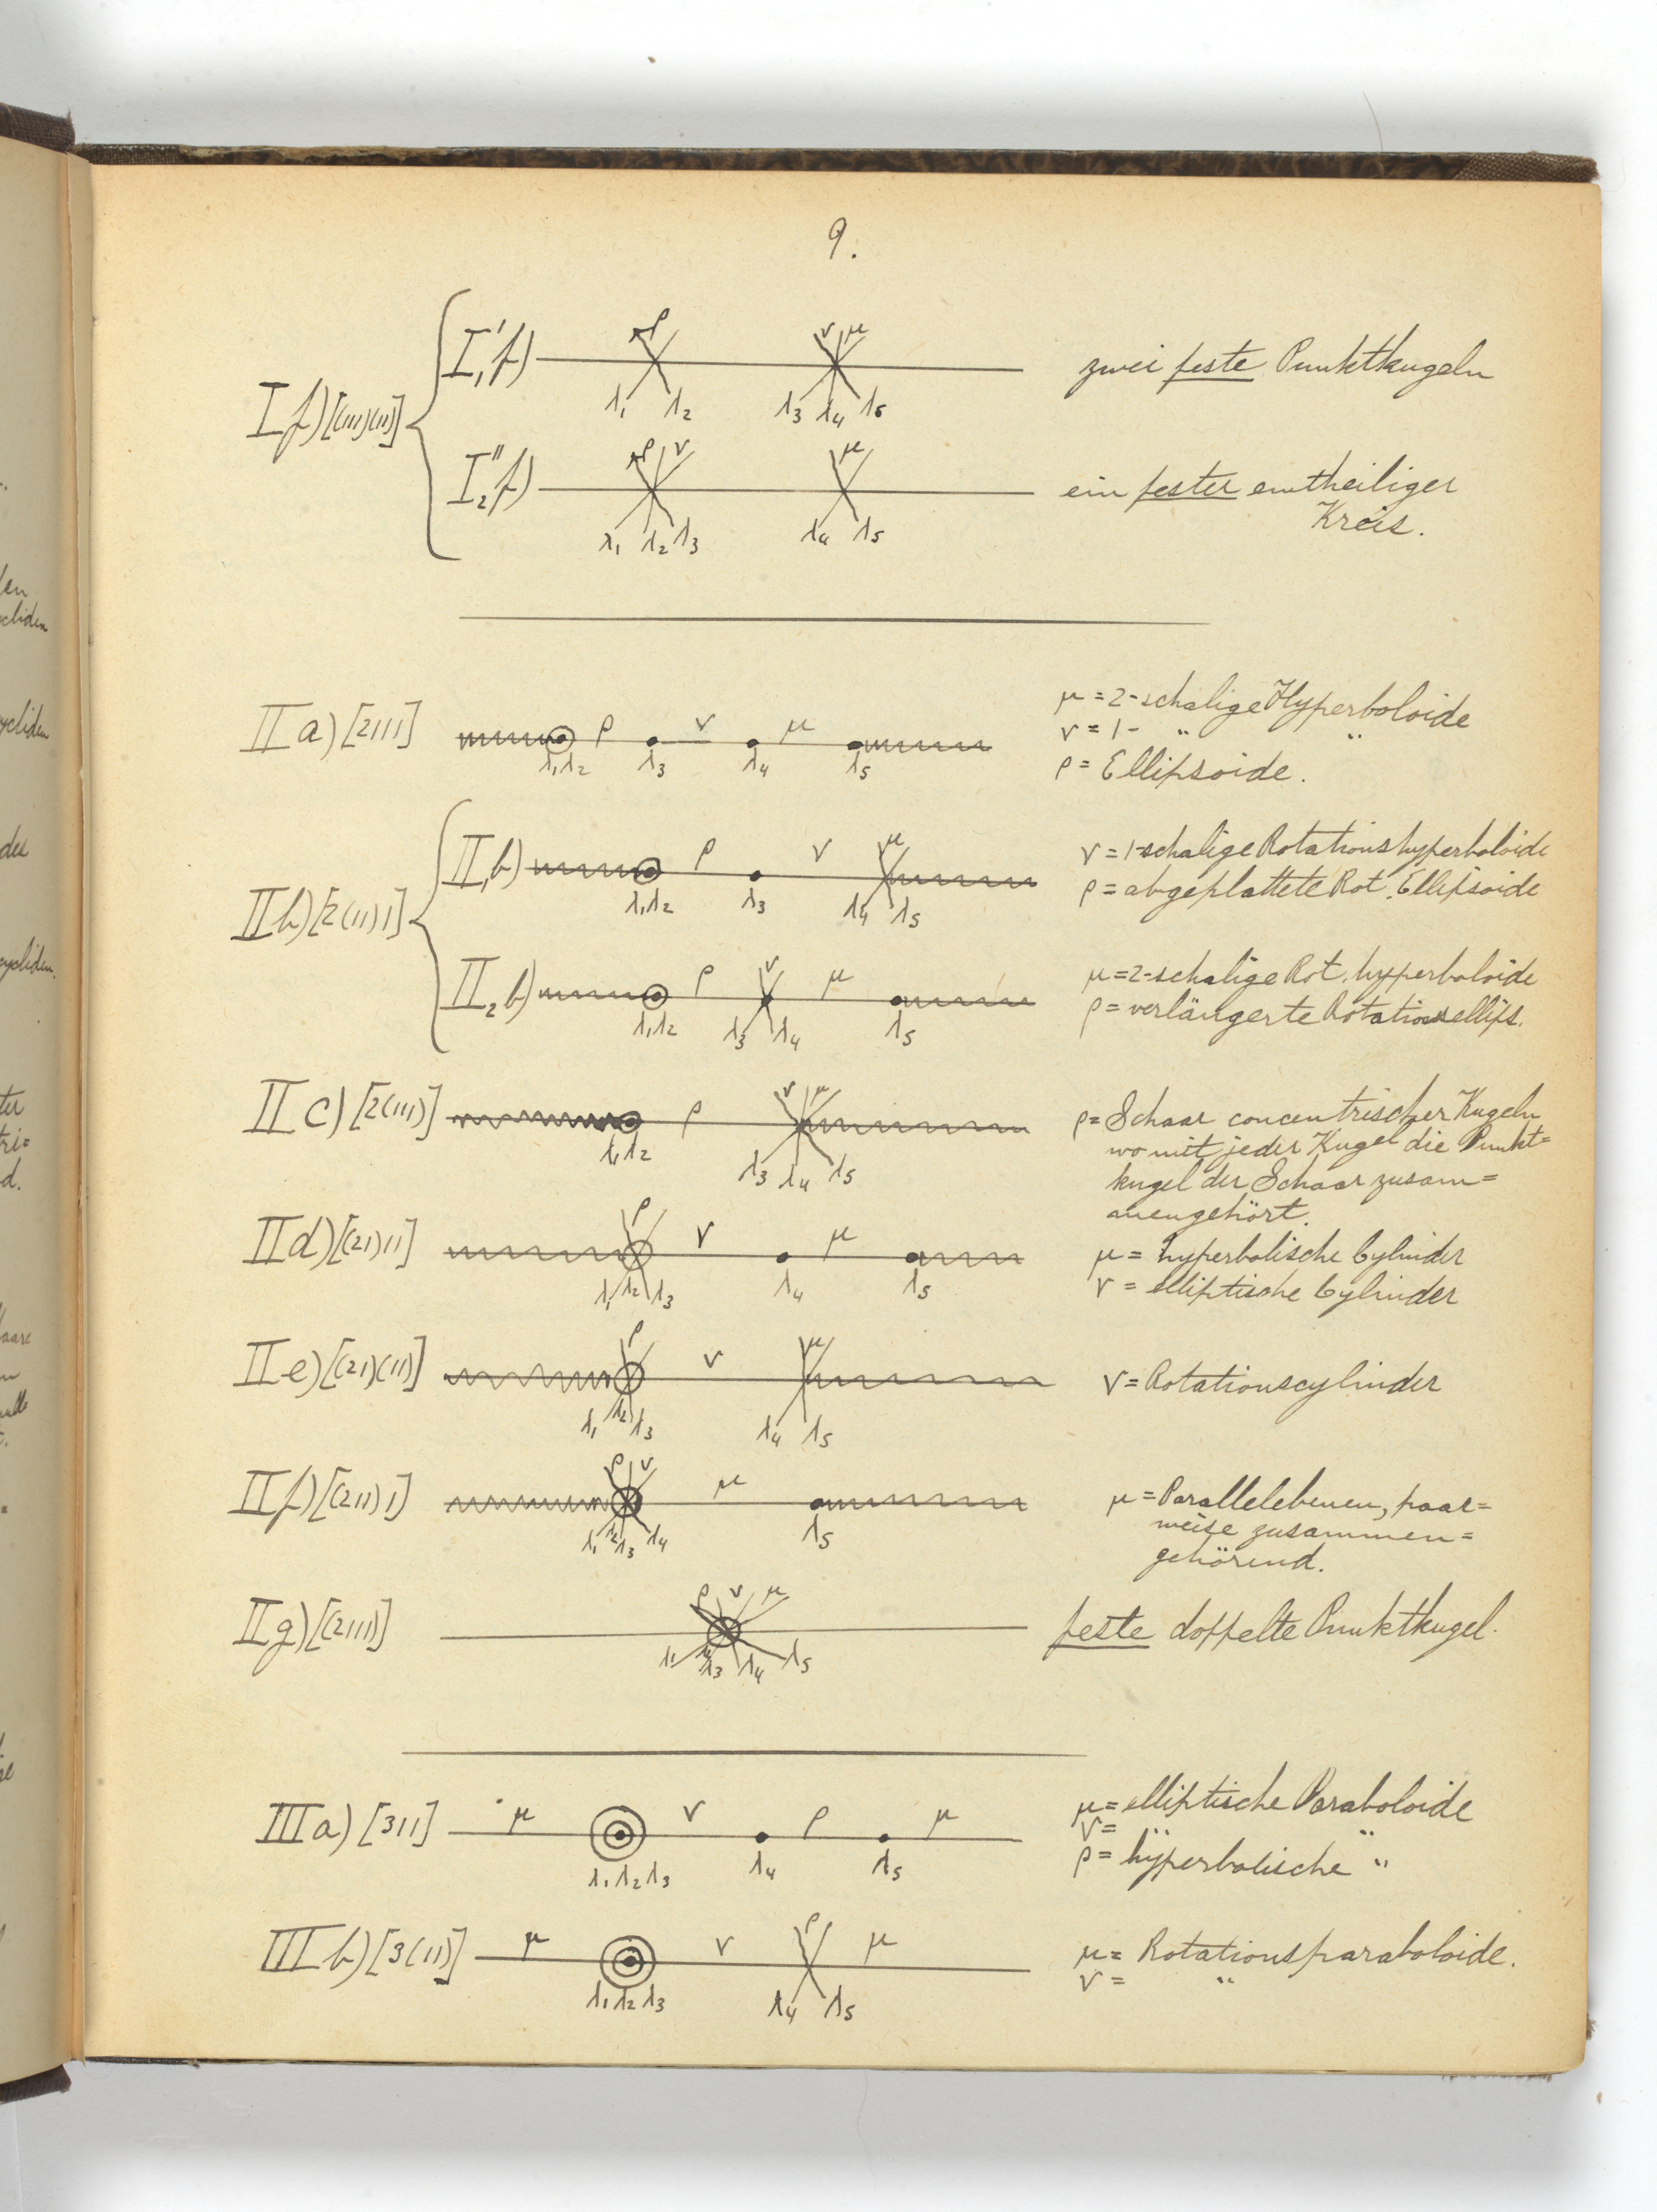 9.
I f) [(111)(11)]
I₁' f) ρ ν μ zwei feste Punktkugeln
λ₁ λ₂ λ₃ λ₄ λ₅
I₂'' f) ρ ν μ ein fester eintheiliger
Kreis.
λ₁ λ₂ λ₃ λ₄ λ₅
II a) [2111] ρ ν μ
λ₁ λ₂ λ₃ λ₄ λ₅
μ = 2-schalige Hyperboloide
ν = 1- „ „
ρ = Ellipsoide.
II b) [2(11)1]
II₁ b) ρ ν μ
λ₁ λ₂ λ₃ λ₄ λ₅
ν = 1-schalige Rotationshyperboloide
ρ = abgeplattete Rot. Ellipsoide
II₂ b) ρ ν μ
λ₁ λ₂ λ₃ λ₄ λ₅
μ = 2-schalige Rot. hyperboloide
ρ = verlängerte Rotationsellips.
II c) [2(111)] ρ ν μ
λ₁ λ₂ λ₃ λ₄ λ₅
ρ = Schaar concentrischer Kugeln
wo mit jeder Kugel die Punkt=
kugel der Schaar zusam=
mengehört.
II d) [(21)11] ρ ν μ
λ₁ λ₂ λ₃ λ₄ λ₅
μ = hyperbolische Cylinder
ν = elliptische Cylinder
II e) [(21)(11)] ρ ν μ
λ₁ λ₂ λ₃ λ₄ λ₅
ν = Rotationscylinder
II f) [(211)1] ρ ν μ
λ₁ λ₂ λ₃ λ₄ λ₅
μ = Parallelebenen, paar=
weise zusammen=
gehörend.
II g) [(2111)] ρ ν μ
λ₁ λ₂ λ₃ λ₄ λ₅
feste doppelte Punktkugel.
III a) [311] μ ν ρ μ
λ₁ λ₂ λ₃ λ₄ λ₅
μ = elliptische Paraboloide
ν = „ „
ρ = hyperbolische „
III b) [3(11)] μ ν ρ μ
λ₁ λ₂ λ₃ λ₄ λ₅
μ = Rotationsparaboloide.
ν = „